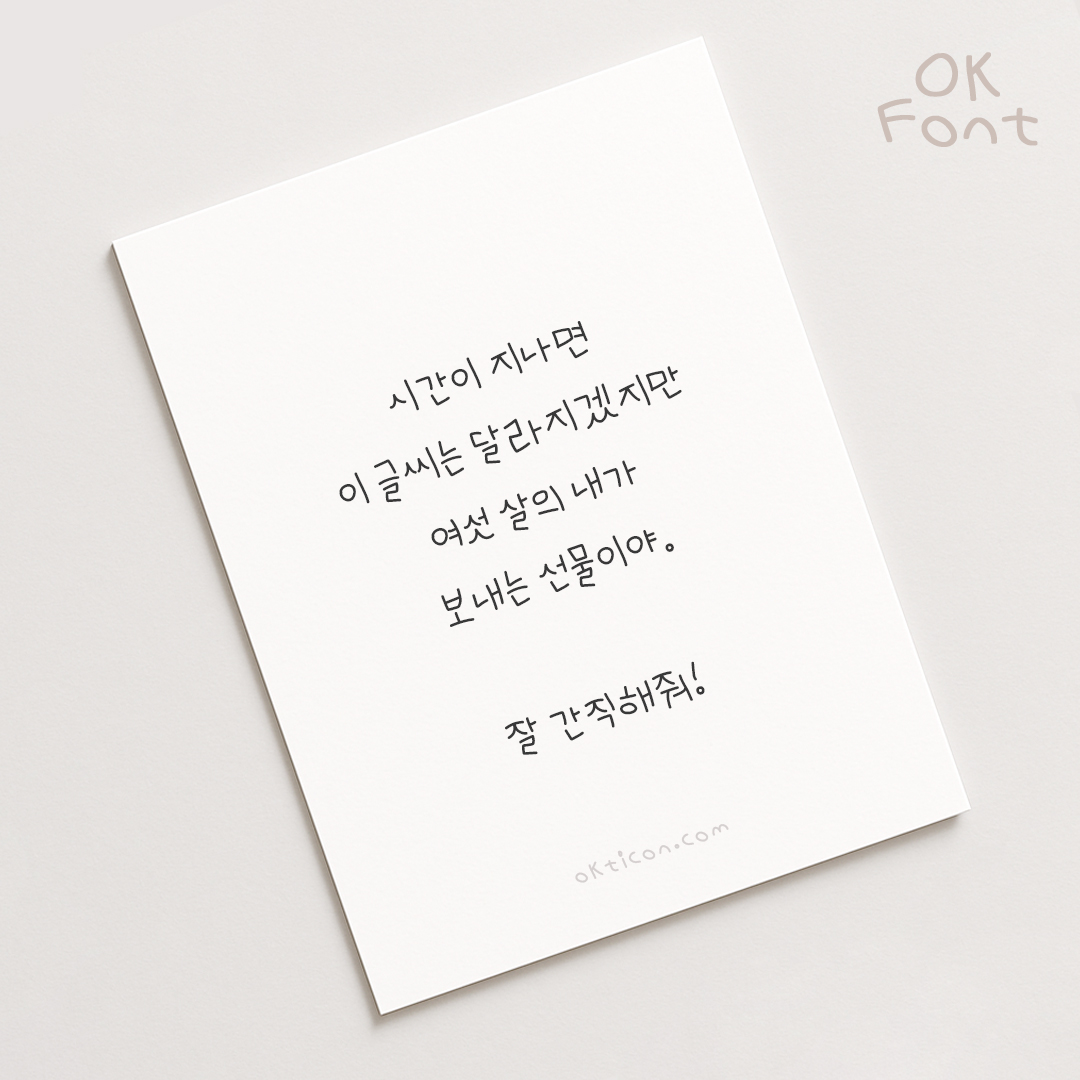 OK
Font
시간이 지나면
이 글씨는 달라지겠지만
여섯 살의 내가
보내는 선물이야.
잘 간직해줘!
okticon.com